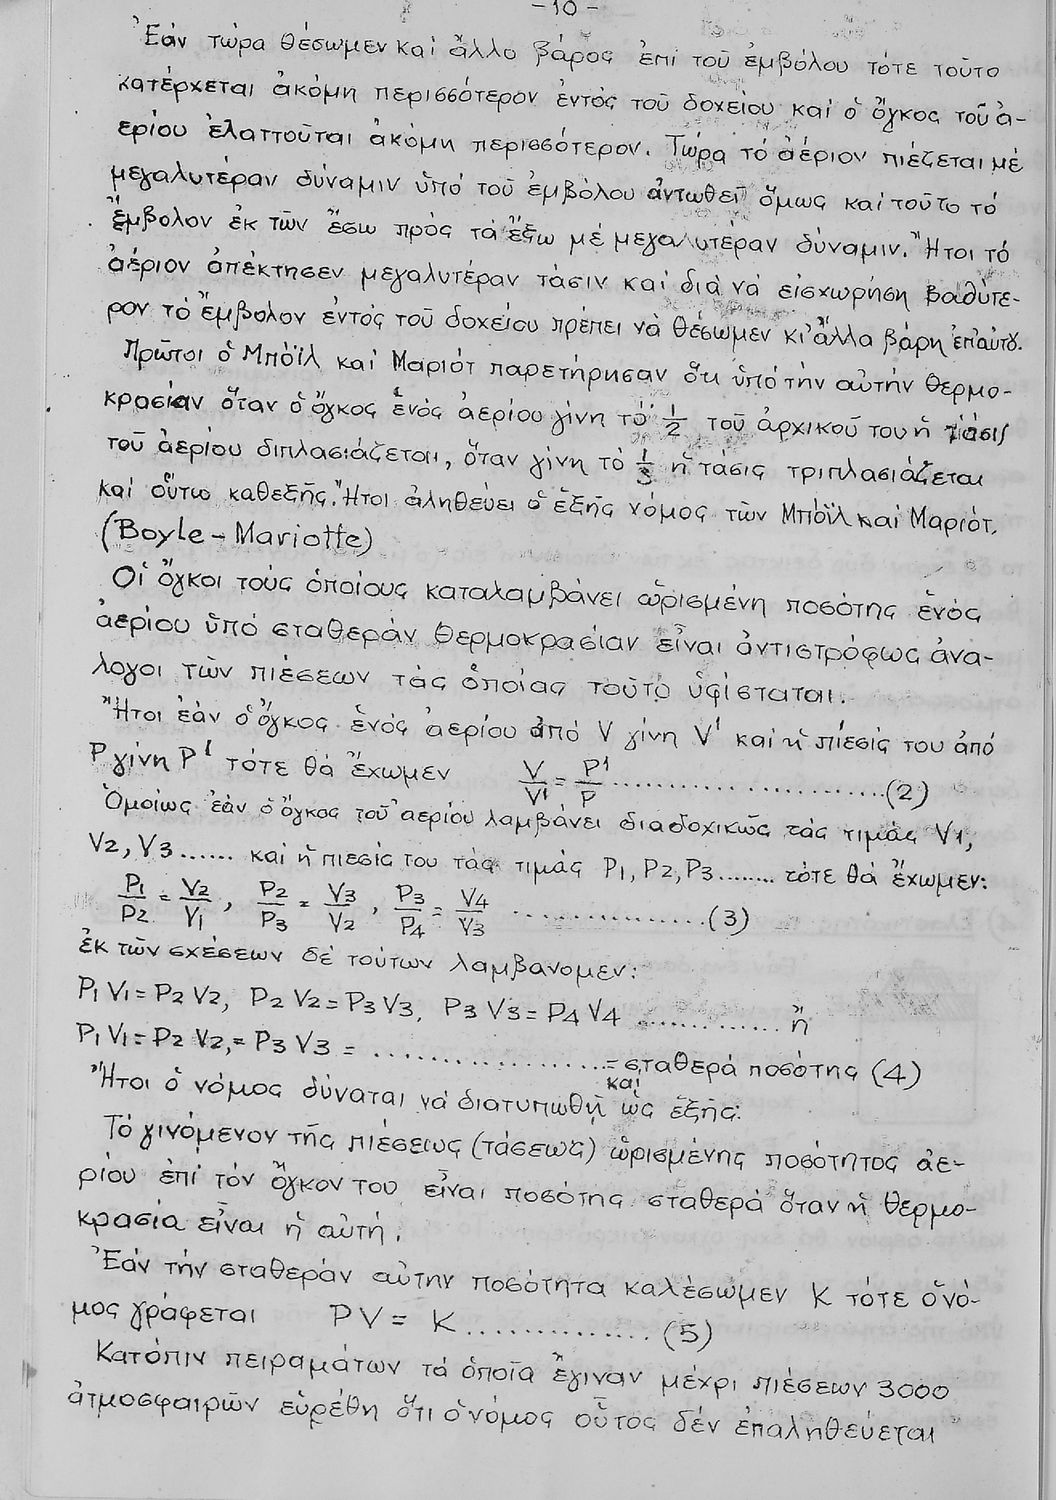 -10-
Ἐάν τώρα θέσωμεν καί ἄλλο βάρος ἐπί τοῦ ἐμβόλου τότε τοῦτο
κατέρχεται ἀκόμη περισσότερον ἐντός τοῦ δοχείου καί ὁ ὄγκος τοῦ ἀ-
ερίου ἐλαττοῦται ἀκόμη περισσότερον. Τώρα τό ἀέριον πιέζεται μέ
μεγαλυτέραν δύναμιν ὑπό τοῦ ἐμβόλου ἀντωθεῖ ὅμως καί τοῦτο τό
ἔμβολον ἐκ τῶν ἔσω πρός τά ἔξω μέ μεγαλυτέραν δύναμιν. Ἤτοι τό
ἀέριον ἀπέκτησεν μεγαλυτέραν τάσιν καί διά νά εἰσχωρήση βαθύτε-
ρον τό ἔμβολον ἐντός τοῦ δοχείου πρέπει νά θέσωμεν κι' ἄλλα βάρη ἐπ' αὐτοῦ.
Πρῶτοι ὁ Μπόϊλ καί Μαριότ παρετήρησαν ὅτι ὑπό τήν αὐτήν θερμο-
κρασίαν ὅταν ὁ ὄγκος ἑνός ἀερίου γίνη τό 1/2 τοῦ ἀρχικοῦ του ἡ τάσις
τοῦ ἀερίου διπλασιάζεται, ὅταν γίνη τό 1/3 ἡ τάσις τριπλασιάζεται
καί οὕτω καθεξῆς. Ἤτοι ἀληθεύει ὁ ἑξῆς νόμος τῶν Μπόϊλ καί Μαριότ.
(Boyle - Mariotte)
Οἱ ὄγκοι τούς ὁποίους καταλαμβάνει ὡρισμένη ποσότης ἑνός
ἀερίου ὑπό σταθεράν θερμοκρασίαν εἶναι ἀντιστρόφως ἀνά-
λογοι τῶν πιέσεων τάς ὁποίας τοῦτο ὑφίσταται.
Ἤτοι ἐάν ὁ ὄγκος ἑνός ἀερίου ἀπό V γίνη V' καί ἡ πίεσίς του ἀπό
P γίνη P' τότε θά ἔχωμεν V/V' = P'/P ........................(2)
Ὁμοίως ἐάν ὁ ὄγκος τοῦ ἀερίου λαμβάνει διαδοχικῶς τάς τιμάς V1,
V2, V3 ...... καί ἡ πιεσίς του τάς τιμάς P1, P2, P3 ........ τότε θά ἔχωμεν:
P1/P2 = V2/V1, P2/P3 = V3/V2, P3/P4 = V4/V3 ..................(3)
ἐκ τῶν σχέσεων δέ τούτων λαμβανομεν:
P1 V1 = P2 V2, P2 V2 = P3 V3, P3 V3 = P4 V4 .............. ἤ
P1 V1 = P2 V2, = P3 V3 = ...................... = σταθερά ποσότης (4)
Ἤτοι ὁ νόμος δύναται νά διατυπωθῆ καί ὡς ἑξῆς:
Τό γινόμενον τῆς πιέσεως (τάσεως) ὡρισμένης ποσότητος ἀε-
ρίου ἐπί τόν ὄγκον του εἶναι ποσότης σταθερά ὅταν ἡ θερμο-
κρασία εἶναι ἡ αὐτή.
Ἐάν τήν σταθεράν αὐτην ποσότητα καλέσωμεν K τότε ὁ νό-
μος γράφεται PV = K ............... (5)
Κατόπιν πειραμάτων τά ὁποῖα ἔγιναν μέχρι πιέσεων 3000
ἀτμοσφαιρῶν εὑρέθη ὅτι ὁ νόμος οὗτος δέν ἐπαληθεύεται